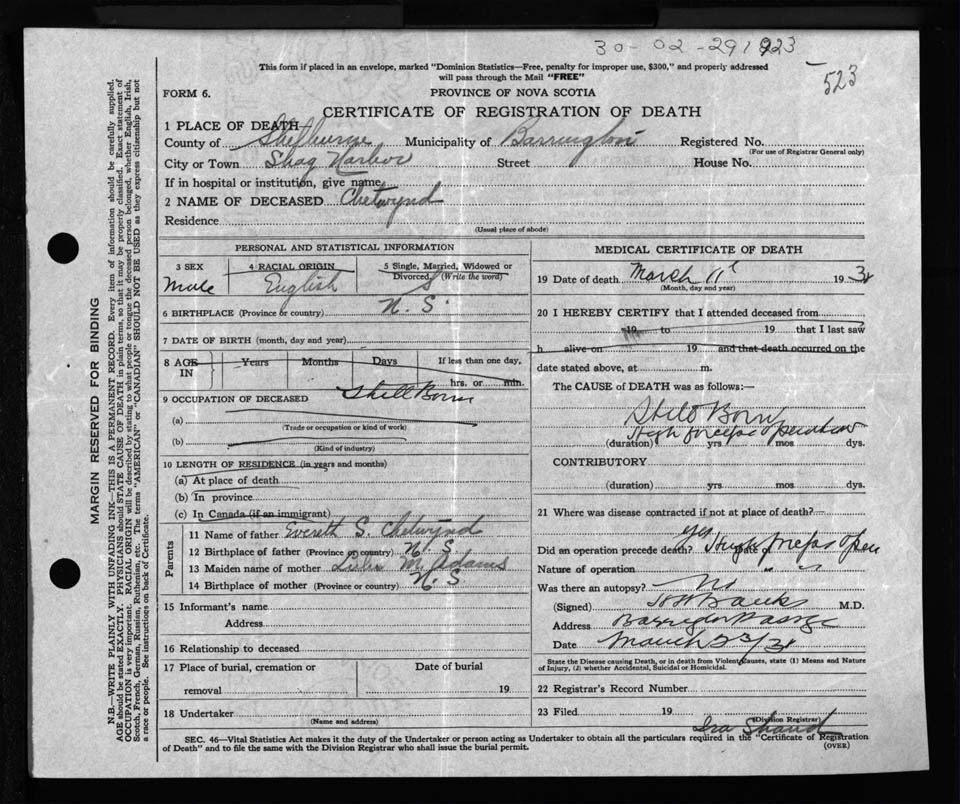 30-02-291923
523
This form if placed in an envelope, marked "Dominion Statistics—Free, penalty for improper use, $300," and properly addressed
will pass through the Mail "FREE"
FORM 6.
PROVINCE OF NOVA SCOTIA
CERTIFICATE OF REGISTRATION OF DEATH
1 PLACE OF DEATH
County of Shelburne Municipality of Barrington Registered No.
(For use of Registrar General only)
City or Town Shag Harbor Street House No.
If in hospital or institution, give name
2 NAME OF DECEASED Chetwynd
Residence
(Usual place of abode)
MARGIN RESERVED FOR BINDING
N.B.—WRITE PLAINLY WITH UNFADING INK—THIS IS A PERMANENT RECORD. Every item of information should be carefully supplied.
AGE should be stated EXACTLY. PHYSICIANS should STATE CAUSE OF DEATH in plain terms, so that it may be properly classified. Exact statement of
OCCUPATION is very important. RACIAL ORIGIN will be described by stating to what people or tongue the deceased person belonged, whether English, Irish,
Scotch, French, German, Russian, Ruthenian, etc. The terms "AMERICAN" or "CANADIAN" SHOULD NOT BE USED as they express citizenship but not
a race or people. See instructions on back of Certificate.
PERSONAL AND STATISTICAL INFORMATION
3 SEX
Male
4 RACIAL ORIGIN
English
5 Single, Married, Widowed or
Divorced, (Write the word)
S
6 BIRTHPLACE (Province or country) N. S.
7 DATE OF BIRTH (month, day and year)
8 AGE IN Years Months Days If less than one day,
hrs. or min.
9 OCCUPATION OF DECEASED Still Born
(a)
(Trade or occupation or kind of work)
(b)
(Kind of industry)
10 LENGTH OF RESIDENCE (in years and months)
(a) At place of death
(b) In province
(c) In Canada (if an immigrant)
Parents
11 Name of father Everett S. Chetwynd
12 Birthplace of father (Province or country) N. S
13 Maiden name of mother M. Adams
14 Birthplace of mother (Province or country) N. S
15 Informant's name
Address
16 Relationship to deceased
17 Place of burial, cremation or Date of burial
removal 19
18 Undertaker
(Name and address)
MEDICAL CERTIFICATE OF DEATH
19 Date of death March 11 193
(Month, day and year)
20 I HEREBY CERTIFY that I attended deceased from
19 to 19 that I last saw
h alive on 19 and that death occurred on the
date stated above, at m.
The CAUSE of DEATH was as follows:—
Still Born
High forceps operation
(duration) yrs mos dys.
CONTRIBUTORY
(duration) yrs mos dys.
21 Where was disease contracted if not at place of death?
Did an operation precede death? yes Date of High forceps Oper
Nature of operation " "
Was there an autopsy? No
(Signed) Banks M.D.
Address Barrington Passage
Date March 23/
State the Disease causing Death, or in death from Violent Causes, state (1) Means and Nature
of Injury, (2) whether Accidental, Suicidal or Homicidal.
22 Registrar's Record Number
23 Filed 19
Ira Shand
(Division Registrar)
SEC. 46—Vital Statistics Act makes it the duty of the Undertaker or person acting as Undertaker to obtain all the particulars required in the "Certificate of Registration
of Death" and to file the same with the Division Registrar who shall issue the burial permit.
(OVER)